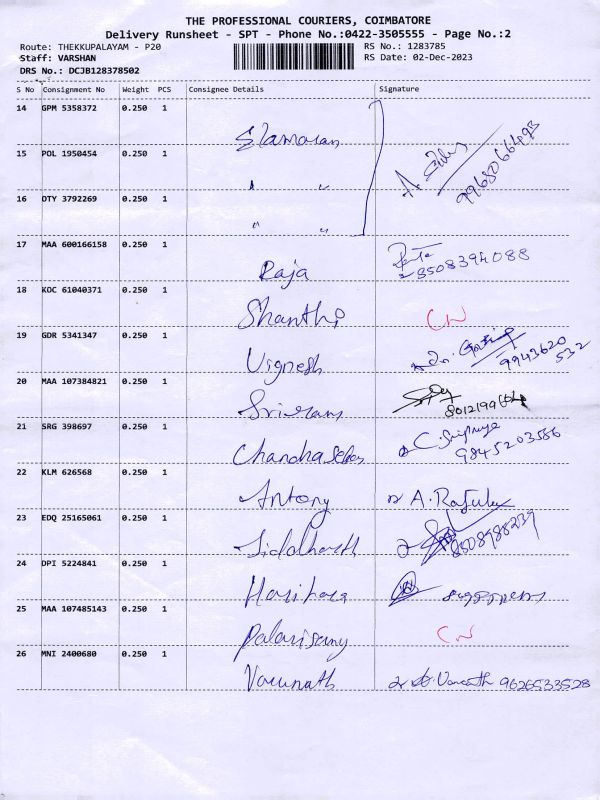 THE PROFESSIONAL COURIERS, COIMBATORE
Delivery Runsheet - SPT - Phone No.:0422-3505555 - Page No.:2
Route: THEKKUPALAYAM - P20 RS No.: 1283785
Staff: VARSHAN RS Date: 02-Dec-2023
DRS No.: DCJB128378502
S No Consignment No Weight PCS Consignee Details Signature
14 GPM 5358372 0.250 1 Elamaran
15 POL 1950454 0.250 1 " " 9968066493
16 DTY 3792269 0.250 1 " "
17 MAA 600166158 0.250 1 Raja 9508394088
18 KOC 61040371 0.250 1 Shanthi CN
19 GDR 5341347 0.250 1 Vignesh 9943620
532
20 MAA 107384821 0.250 1 Sriram
21 SRG 398697 0.250 1 Chandrasekar 9845203566
22 KLM 626568 0.250 1 Antony A.
23 EDQ 25165061 0.250 1 Siddharth 8508988239
24 DPI 5224841 0.250 1 Harihara
25 MAA 107485143 0.250 1 Palanisamy CN
26 MNI 2400680 0.250 1 Varunath 9626533528